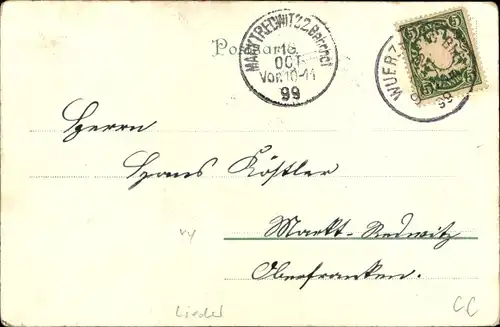 Postkarte.
MARKTREDWITZ 2. Bahnhof
OCT
Vor. 10-11
99
WUERZ
99
5 5
5 5
PFENNIG
Herrn
Hans Köstler
Markt-Redwitz
Oberfranken.
Lieder
CC